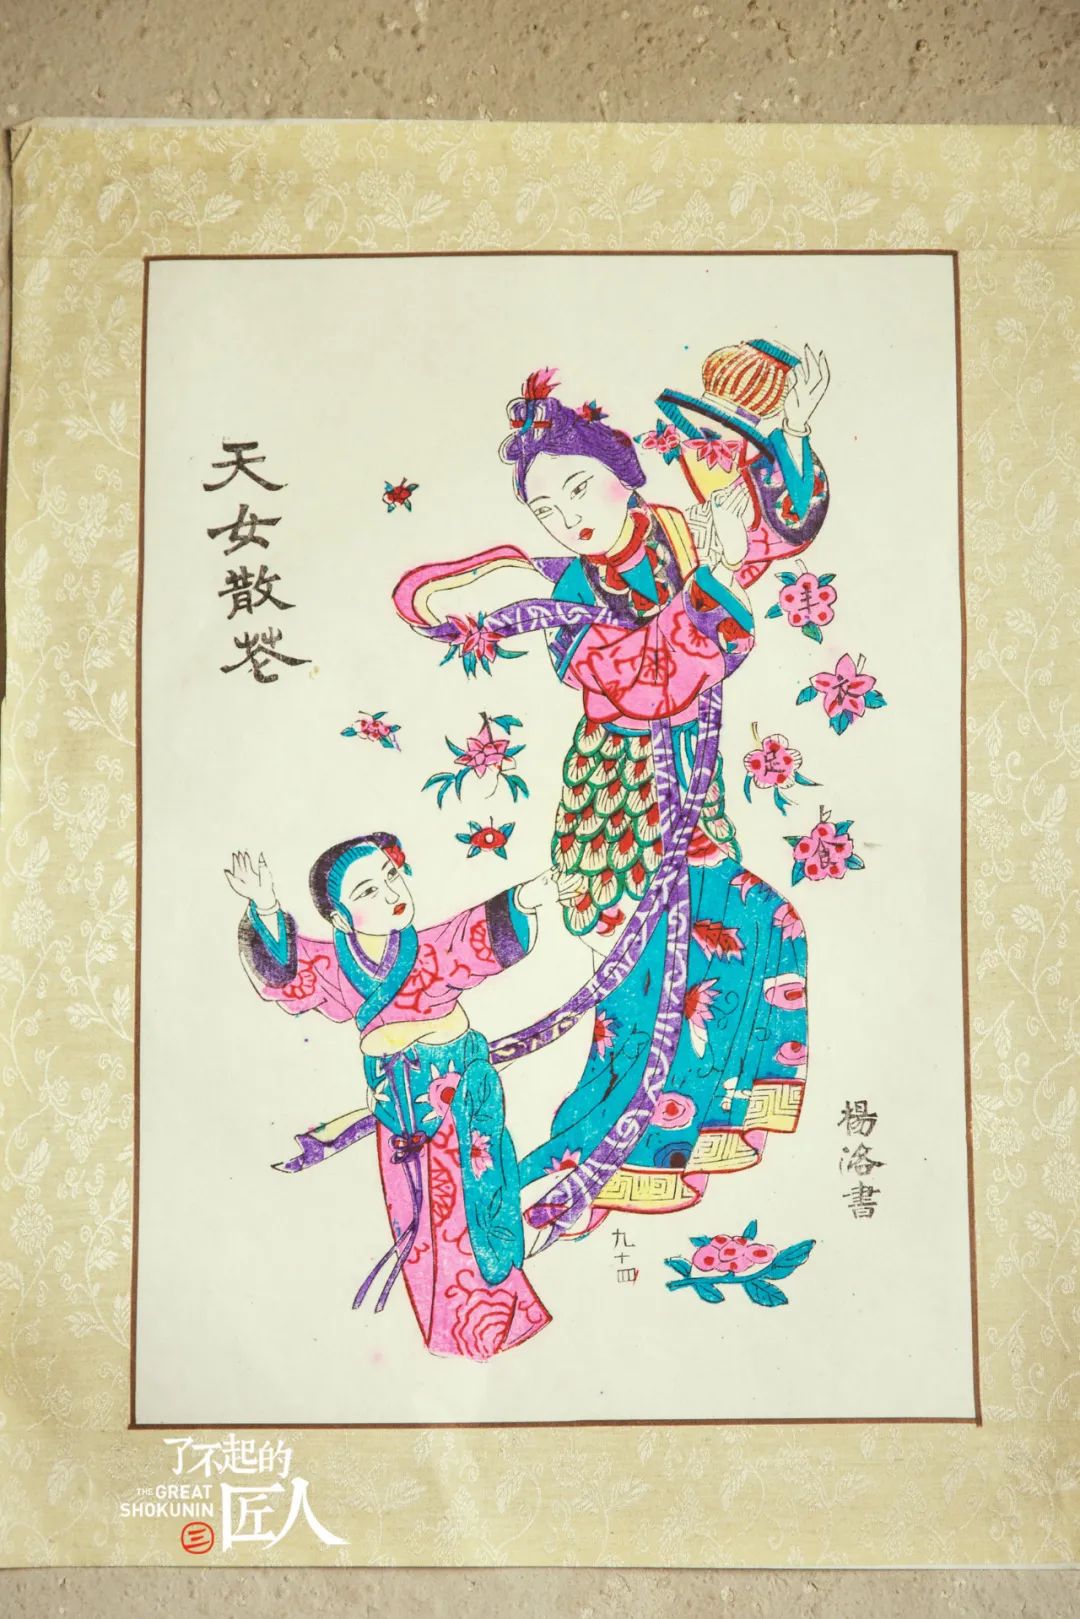 天女散花
丰衣足食
楊洛書
九十四
了不起的
匠人
THE GREAT
SHOKUNIN
三